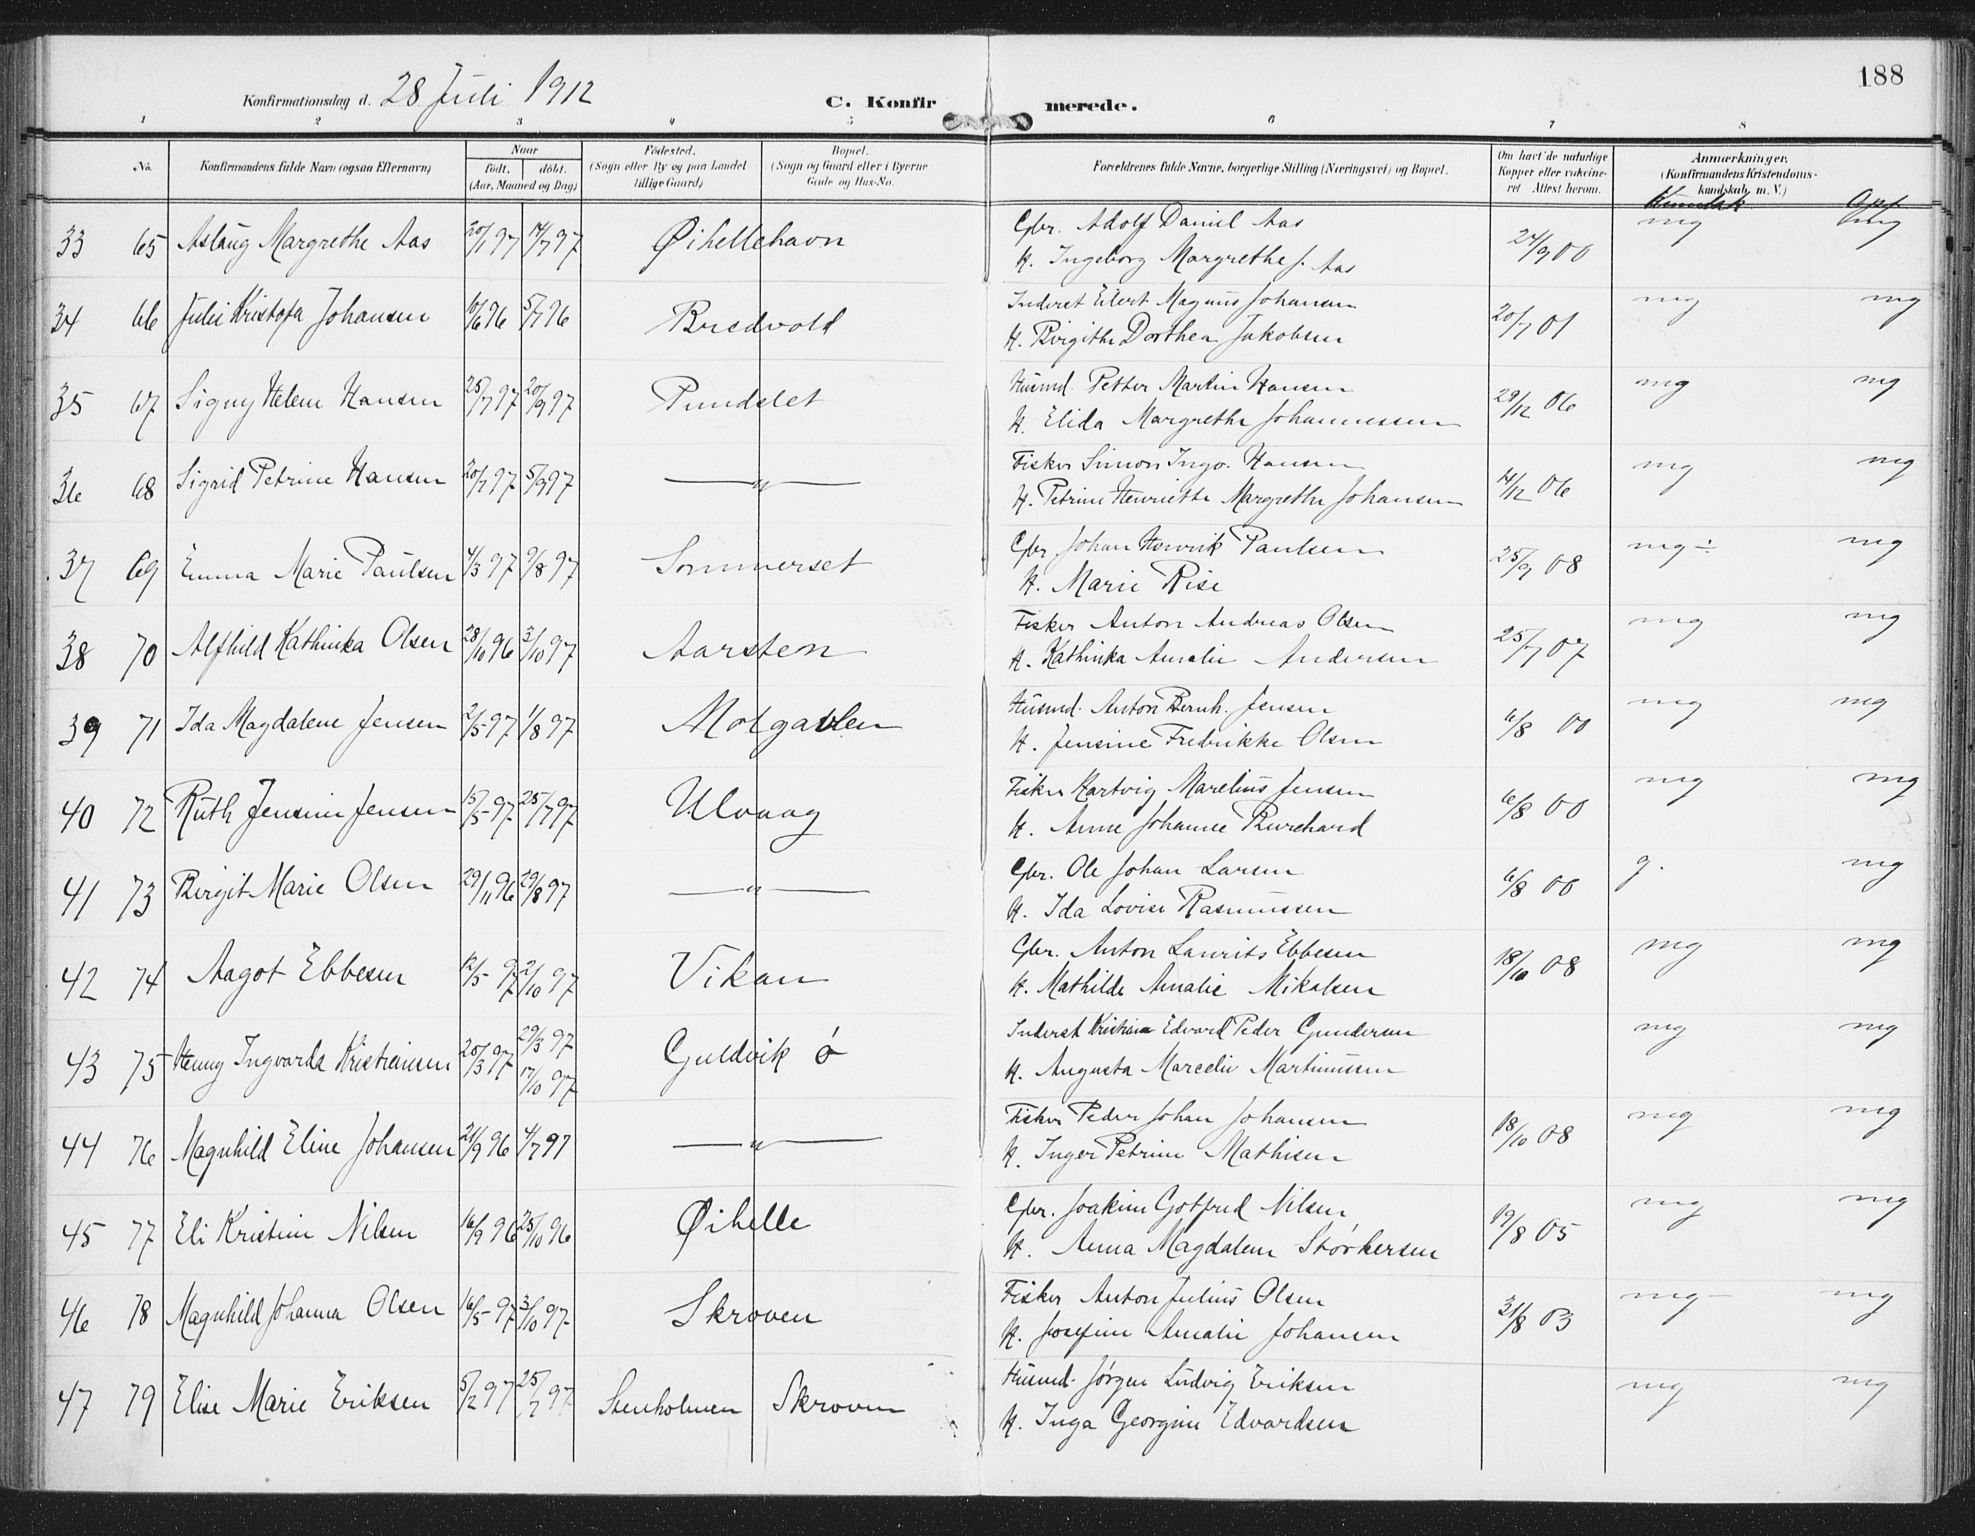 188
Konfirmationsdag d. 28 Juli 1912
C. Konfirmerede.
1 2 3 4 5 6 7 8
No. Konfirmandens fulde Navn (ogsaa Efternavn) Naar født. døbt. (Aar, Maaned og Dag) Fødested. (Sogn eller By og paa Landet tillige Gaard) Bopæl. (Sogn og Gaard eller i Byerne Gade og Hus-No. Forældrenes fulde Navne, borgerlige Stilling (Næringsvei) og Bopæl. Om havt de naturlige Kopper eller vakcineret. Attest herom. Anmærkninger. (Konfirmandens Kristendomskundskab m. V.)
Kundsk. Opf.
33 65 Aslaug Margrethe Aas 20/1 97 14/7 97 Øihellehavn Gbr. Adolf Daniel Aas 24/9 00 mg mg
H. Ingeborg Margrethe J. Aas
34 66 Julie Kristofa Johansen 10/6 96 5/7 96 Bredvold Inderst Eilert Magnus Johansen 20/7 01 mg mg
H. Birgithe Dorthea Jakobsen
35 67 Signy Helene Hansen 25/7 97 20/9 97 Pundslet Husmd. Petter Martin Hansen 29/12 06 mg mg
H. Elida Margrethe Johannessen
36 68 Sigrid Petrine Hansen 20/7 97 5/9 97 —"— Fisker Simon Ingv. Hansen 14/12 06 mg mg
H. Petrine Henriette Margrethe Johansen
37 69 Emma Marie Paulsen 4/3 97 9/8 97 Sommerset Gbr Johan Henrik Paulsen 25/9 08 mg ÷ mg
H. Marie Rise
38 70 Alfhild Kathinka Olsen 28/10 96 3/10 97 Aarsten Fisker Anton Andreas Olsen 25/7 07 mg mg
H. Kathinka Amalie Andersen
39 71 Ida Magdalene Jensen 2/5 97 1/8 97 Molgavlen Husmd. Anton Bernh. Jensen 6/8 00 mg mg
H. Jensine Fredrikke Olsen
40 72 Ruth Jensine Jensen 15/5 97 25/7 97 Ulvaag Fisker Hartvig Marelius Jensen 6/8 00 mg mg
H. Anne Johanne Burchard
41 73 Birgit Marie Olsen 29/11 96 29/8 97 —"— Gbr. Ole Johan Larsen 6/8 00 g. mg
H. Ida Lovise Rasmussen
42 74 Aagot Ebbesen 12/5 97 2/10 97 Vikan Gbr. Anton Laurits Ebbesen 18/10 08 mg mg
H. Mathilde Amalie Mikalsen
43 75 Henny Ingvarda Kristiansen 20/3 97 29/3 97 17/10 97 Guldvik ø Inderst Kristian Edvard Peder Gundersen mg mg
H. Augusta Marcelie Martinussen
44 76 Magnhild Eline Johansen 21/9 96 4/7 97 —"— Fisker Peder Johan Johansen 18/10 08 mg mg
H. Inger Petrine Mathisen
45 77 Eli Kristine Nilsen 16/9 96 25/10 96 Øihelle Gbr. Joakim Gotfred Nilsen 19/8 05 mg mg
H. Anna Magdalene Størkersen
46 78 Magnhild Johanna Olsen 16/5 97 3/10 97 Skroven Fisker Anton Julius Olsen 31/8 03 mg – mg
H. Josefine Amalie Johansen
47 79 Elise Marie Eriksen 5/2 97 25/7 97 Stenholmen Skroven Husmd. Jørgen Ludvig Eriksen mg mg
H. Inga Georgine Edvardsen